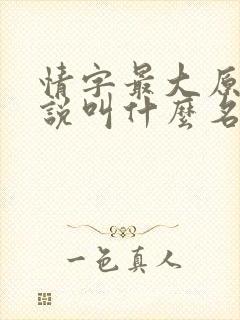 情字最大原
說叫什麼名
一色真人